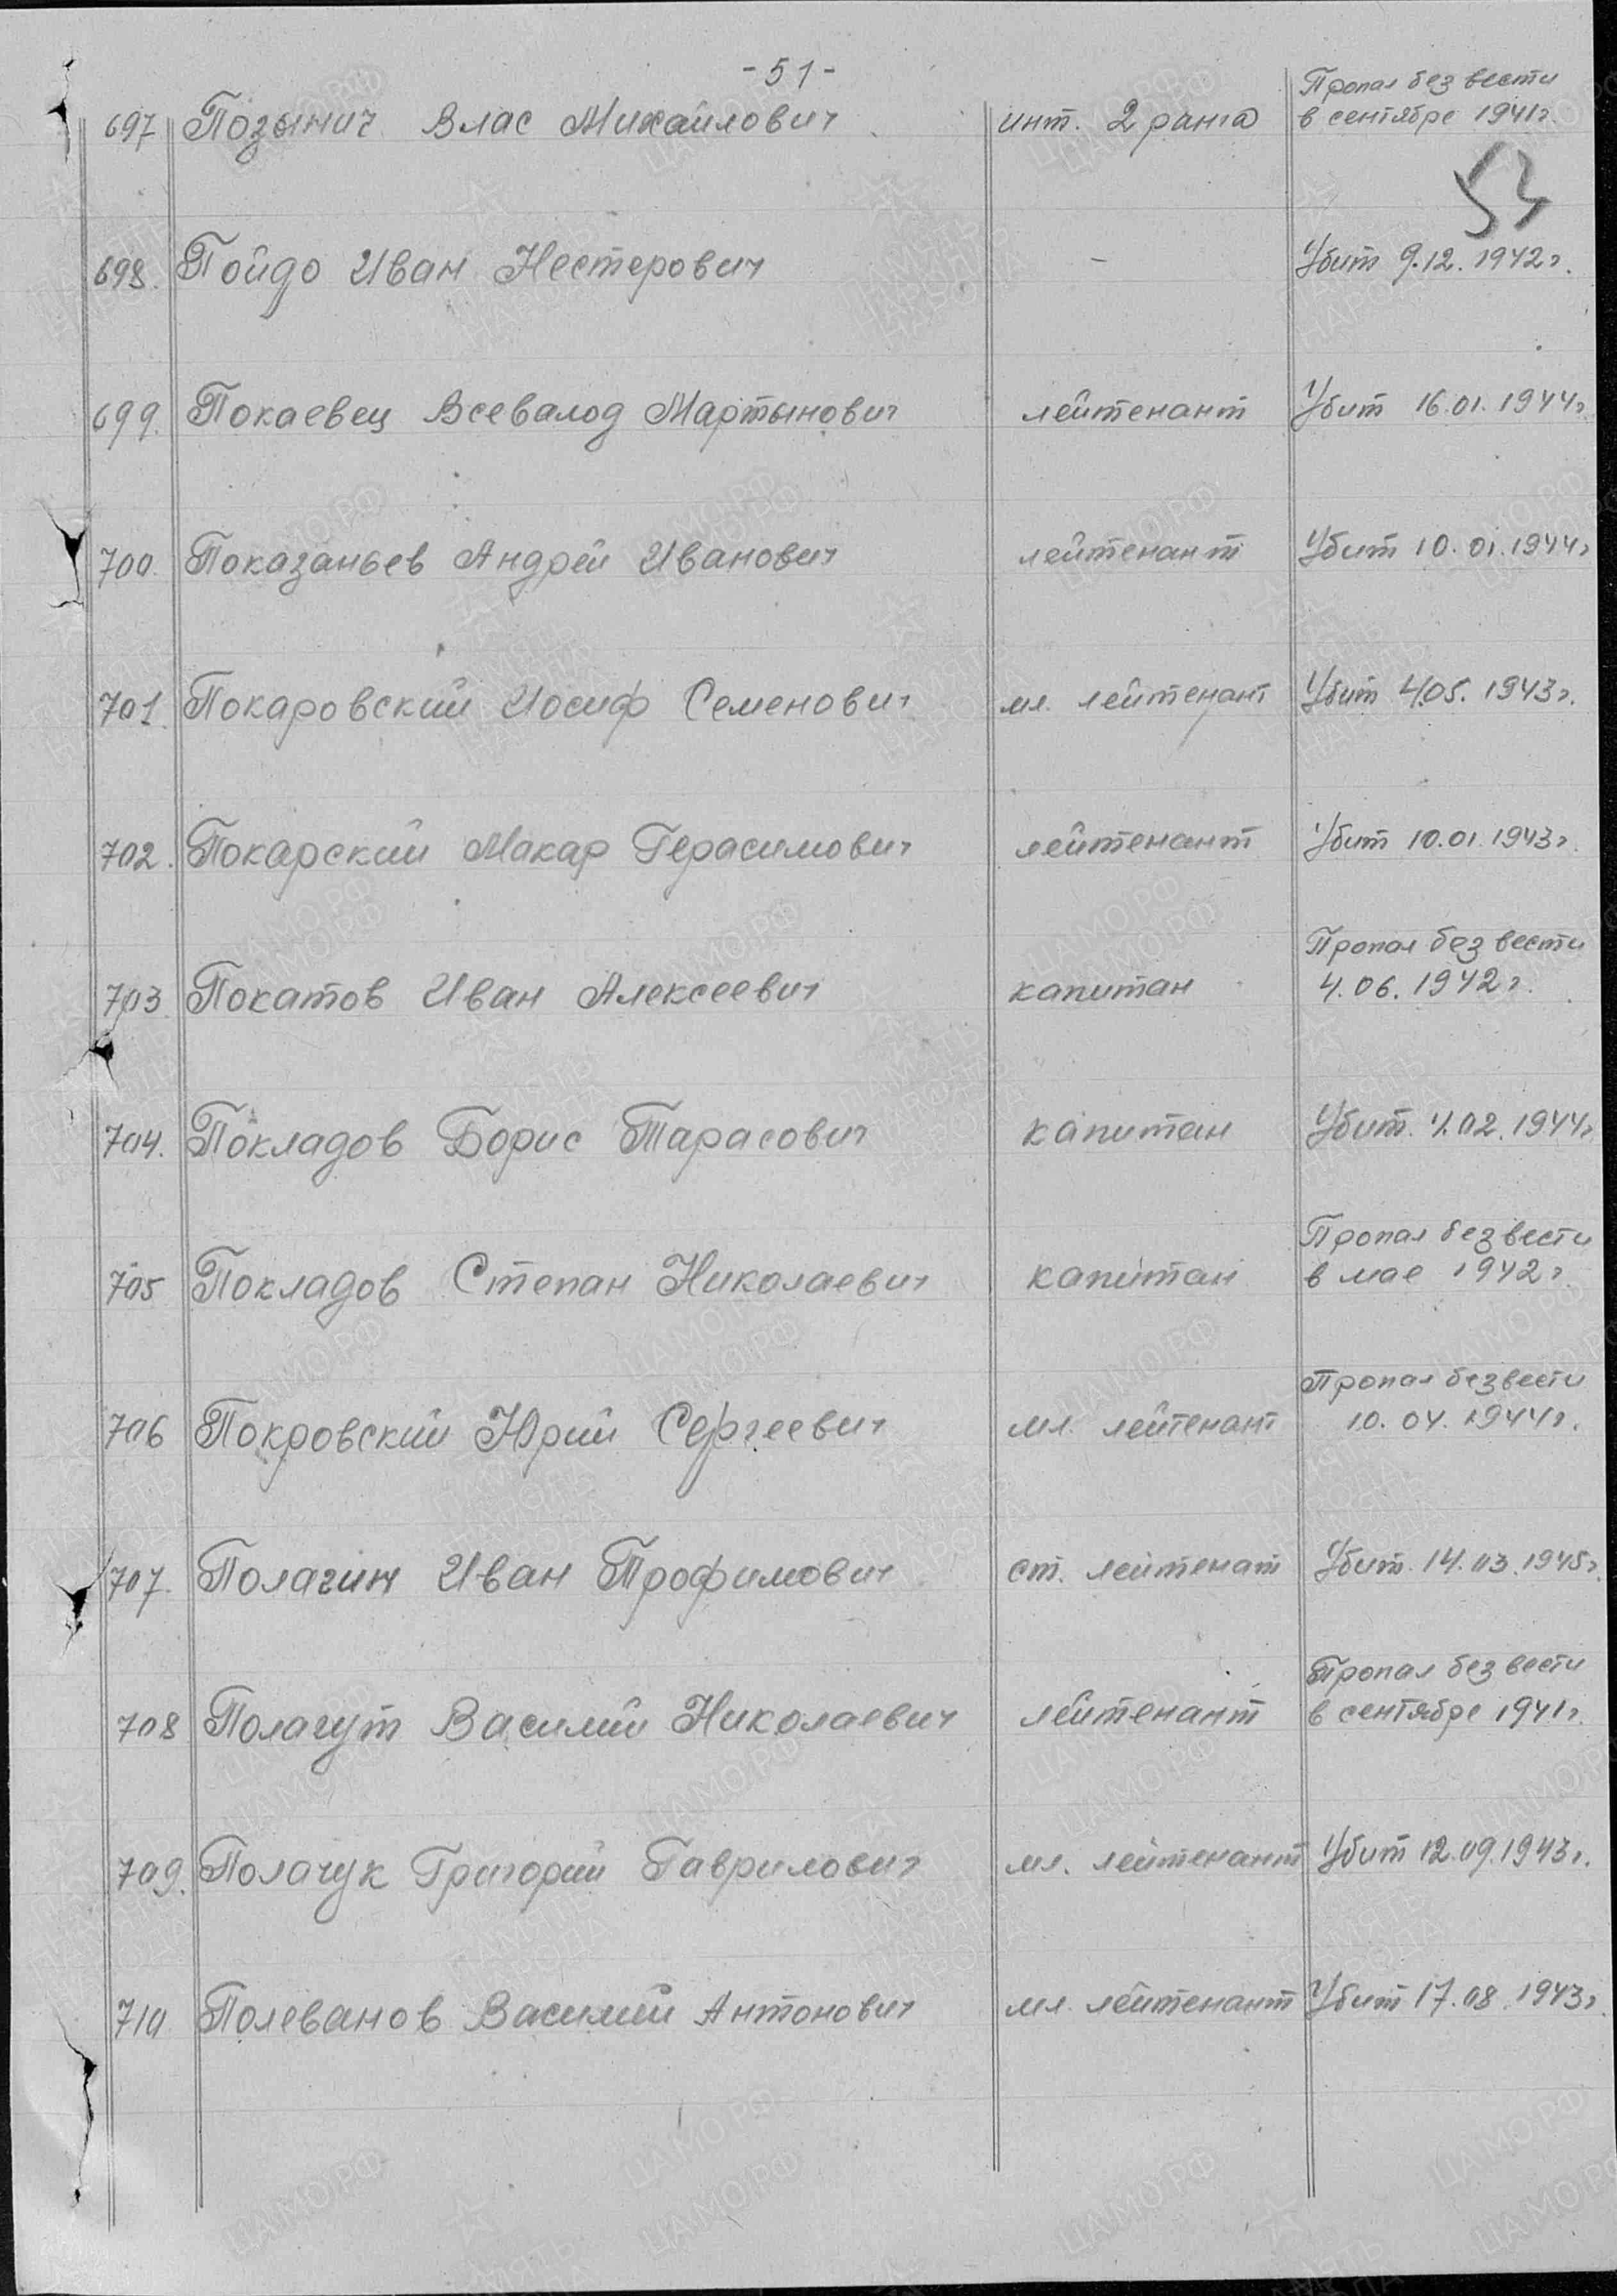 - 51 -
697 Позынич Влас Михайлович инт. 2 ранга Пропал без вести
в сентябре 1941г.
53
698. Пойдо Иван Нестерович - Убит 9.12.1942г.
699. Покаевец Всевалод Мартынович лейтенант Убит 16.01.1944г
700. Показаньев Андрей Иванович лейтенант Убит 10.01.1944г
701 Покаровский Иосиф Семенович мл. лейтенант Убит 4.05.1943г.
702. Покарский Макар Герасимович лейтенант Убит 10.01.1943г.
703 Покатов Иван Алексеевич капитан Пропал без вести
4.06.1942г.
704. Покладов Борис Тарасович капитан Убит 4.02.1944г
705 Покладов Степан Николаевич капитан Пропал без вести
в мае 1942г
706 Покровский Юрий Сергеевич мл. лейтенант Пропал без вести
10.04.1944г.
707. Полагин Иван Трофимович ст. лейтенат Убит 14.03.1945г.
708 Полагут Василий Николаевич лейтенант Пропал без вести
в сентябре 1941г.
709. Полачук Григорий Гаврилович мл. лейтенант Убит 12.09.1943г.
710 Полеванов Василий Антонович мл. лейтенант Убит 17.08.1943г.